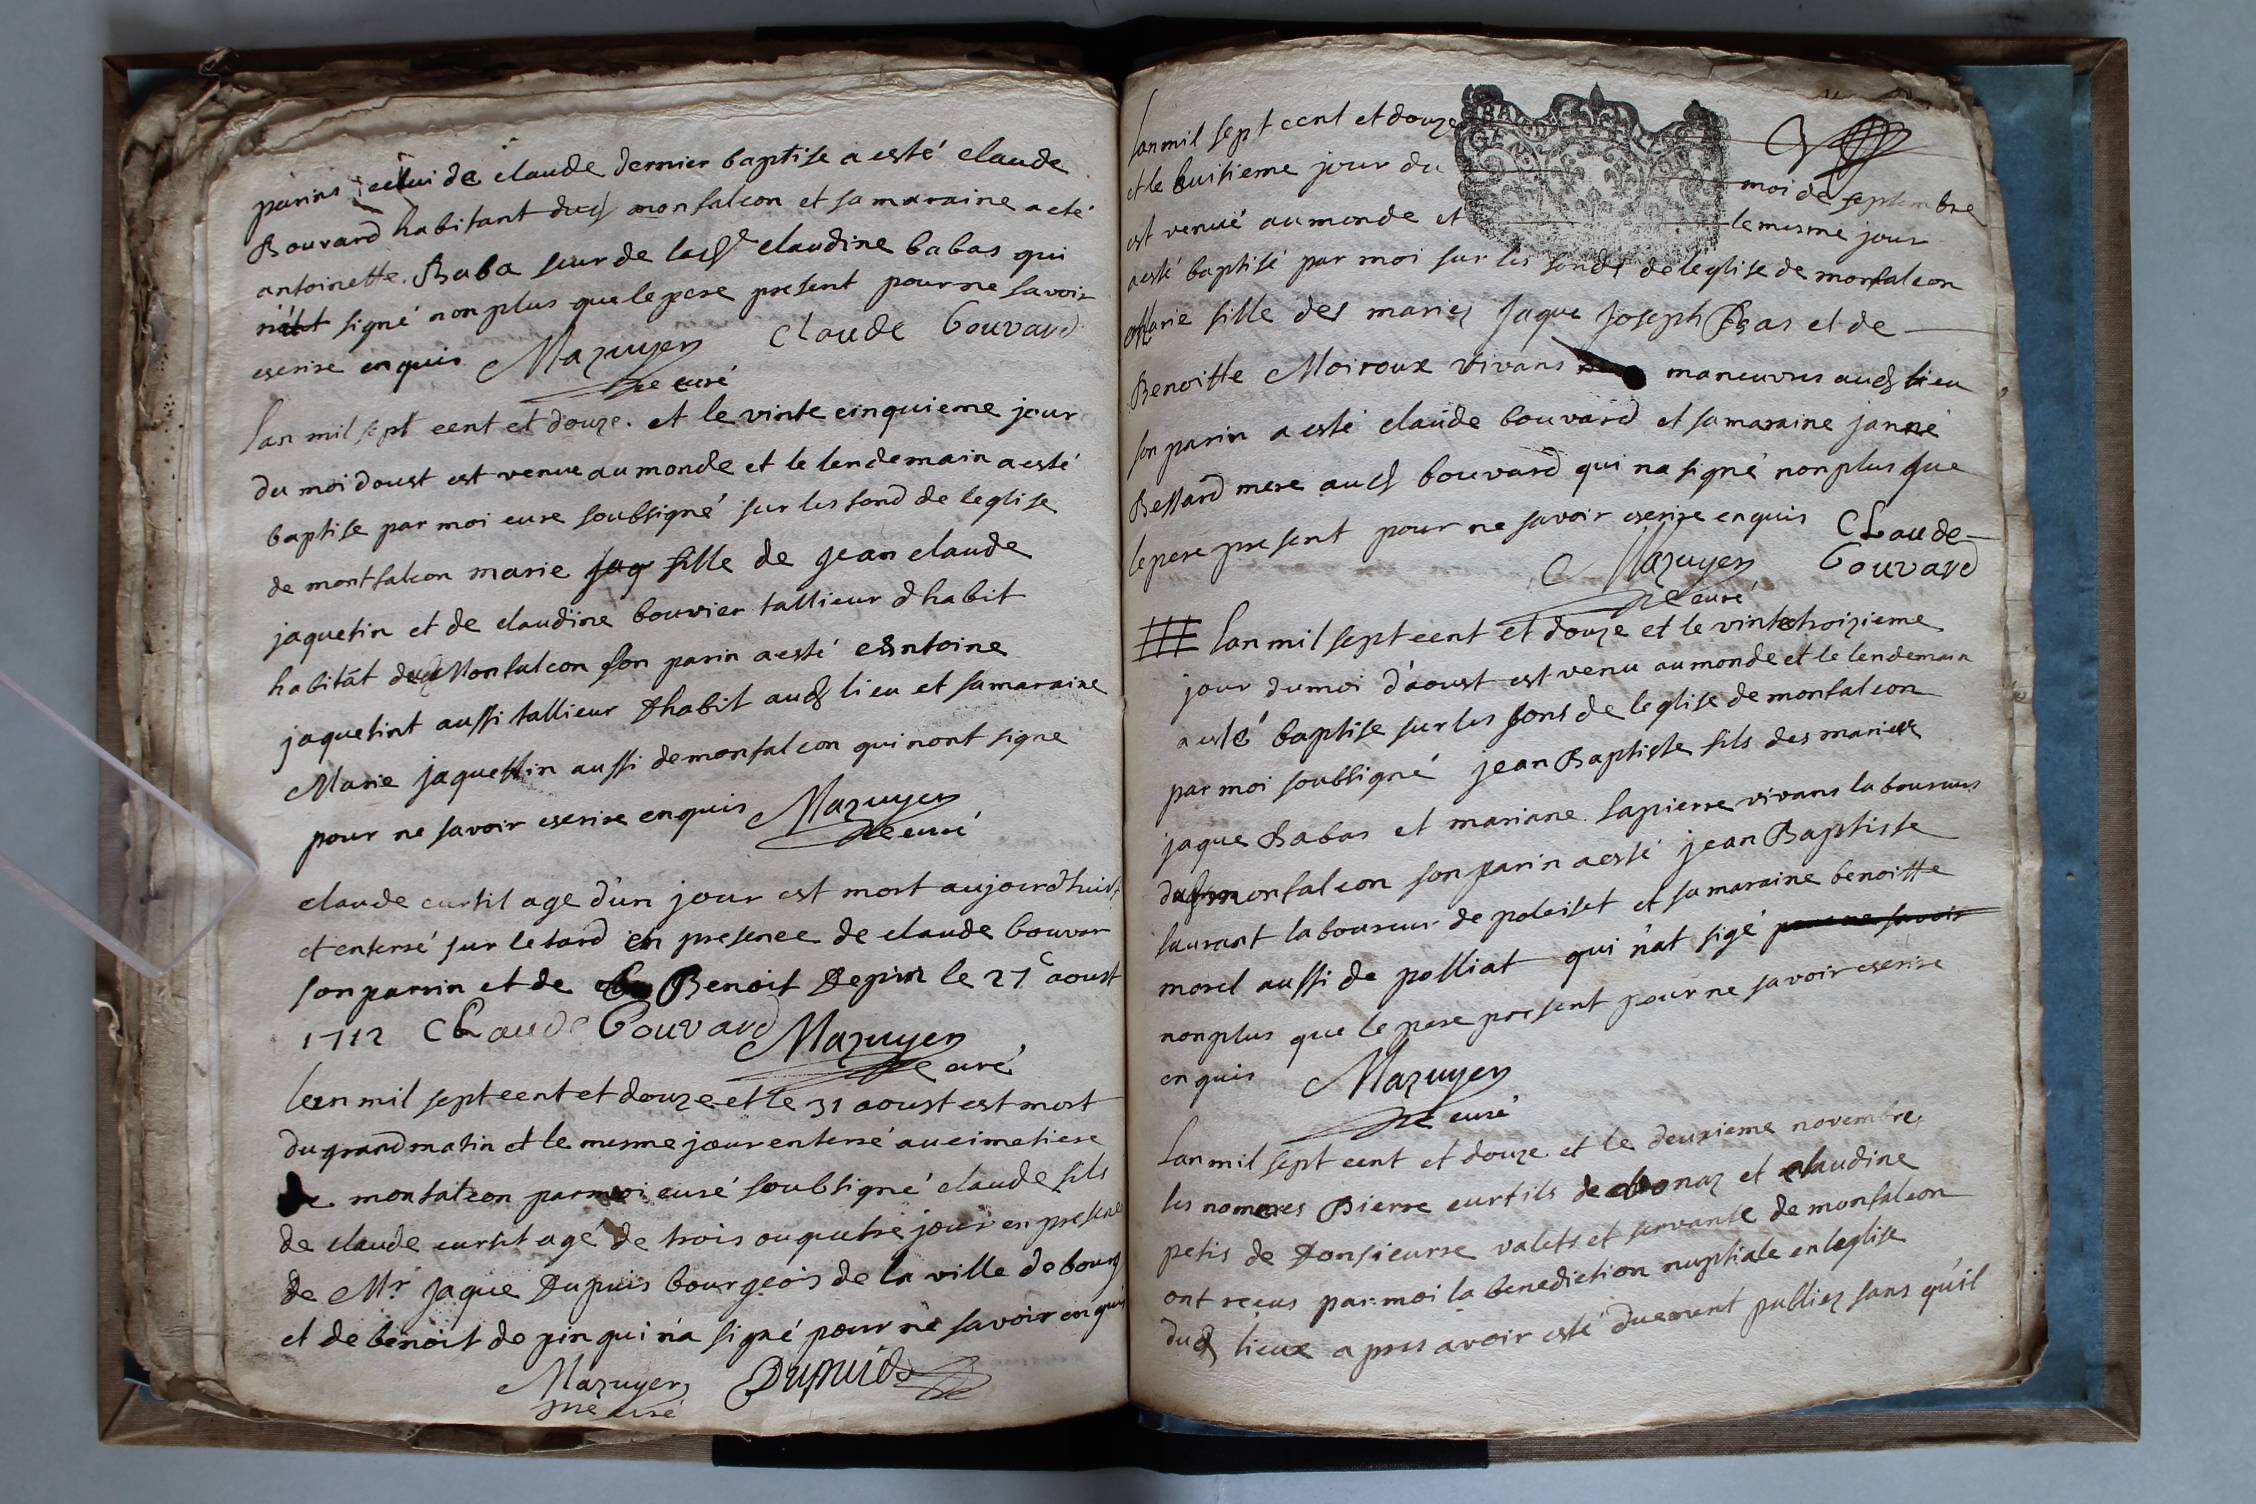 parins celui de claude dernier baptise a esté claude
Bouvard habitant dud monfalcon et sa maraine a eté
antoinette Baba seur de lad claudine babas qui
n'at signé non plus que le pere present pour ne savoir
escrire enquis Mazuyer Claude Bouvard
curé
Lan mil sept cent et douze. et le vinte cinquieme jour
du moi doust est venue au monde et le lendemain a esté
baptise par moi cure soubsigné sur les fond de leglise
de montfalcon marie fille de jean claude
jaquetin et de claudine bouvier tallieur dhabit
habitãt dud Monfalcon son parin a esté Antoine
jaquetint aussi tallieur dhabit aud lieu et sa maraine
Marie jaquettin aussi de monfalcon qui nont signe
pour ne savoir escrire enquis Mazuyer
curé
claude curtil age d'un jour est mort aujourdhuit
et enterré sur le tard en presence de claude bouvar
son parrin et de Benoit depin le 27e aoust
1712 Claude Bouvard Mazuyer
curé
Lan mil sept cent et douze et le 31 aoust est mort
du grand matin et le mesme jour enterré au cimetiere
de monfalcon par moi curé soubsigné claude fils
de claude curtil agé de trois ou quatre jour en presence
de Mr jaque dupuis bourgeois de la ville de bourg
et de benoit de pin qui n'a signé pour ne savoir enquis
Mazuyer Dupuids
curé
Lan mil sept cent et douze
et le huitieme jour du moi de septembre
est venue au monde et le mesme jour
a esté baptisé par moi sur les fonds de leglise de monfalcon
Marie fille des mariez jaque joseph Bas et de
Benoitte Moiroux vivans maneuvres aud lieu
son parin a esté claude bouvard et sa maraine janne
Bessard mere aud bouvard qui na signé non plus que
le pere present pour ne savoir escrire enquis Claude
Mazuyer Bouvard
curé
Lan mil sept cent et douze et le vinte troizieme
jour du moi d'aoust est venu au monde et le lendemain
a esté baptise sur les fons de leglise de monfalcon
par moi soubsigné jean Baptiste fils des mariez
jaque Babas et mariane lapierre vivans laboureurs
dud monfalcon son parin a esté jean Baptiste
laurant laboureur de poleiset et sa maraine benoitte
morel aussi de polliat qui n'at sigé pour ne savoir
non plus que le pere present pour ne savoir escrire
enquis Mazuyer
curé
Lan mil sept cent et douze et le deuxieme novembre
les nommes Pierre curtils de et claudine
petis de donsieurre valets et servante de monfalcon
ont recus par moi la benediction nuptiale en leglise
dud lieux apres avoir esté duement publiez sans qu'il